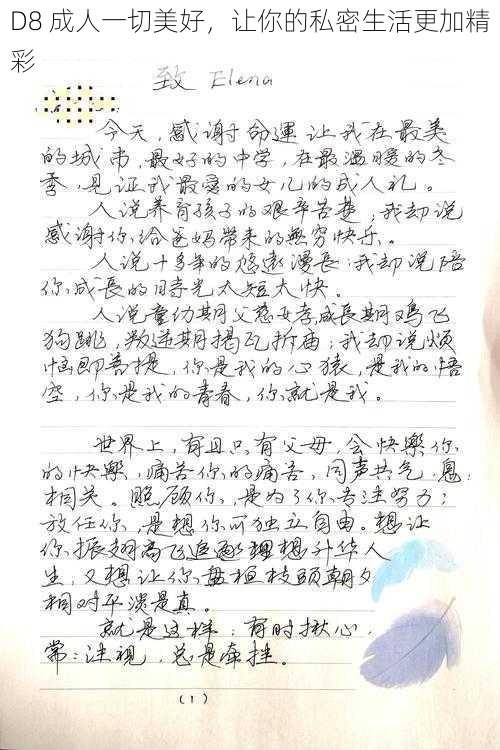 D8 成人一切美好，让你的私密生活更加精
彩
致 Elena
今天,感谢命運让我在最美
的城市,最好的中学,在最温暖的冬
季,见证我最爱的女儿的成人礼。
人说养育孩子的艰辛苦楚,我却说
感谢你给爸妈带来的無穷快乐。
人说十多年的悠遠漫長;我却说陪
你成長的時光太短太快。
人说童幼期父慈女孝,成長期鸡飞
狗跳,叛逆期揭瓦拆庙;我却说烦
恼即菩提,你是我的心猿,是我的悟
空,你是我的青春,你就是我。
世界上,有且只有父母,会快樂你
的快樂,痛苦你的痛苦,同声共气,息息
相关。照顾你,是为了你专注努力;
放任你,是想你可独立自由。想让
你振翅高飞追逐理想升华人
生,又想让你盘桓枝頭朝夕
相对平淡是真。
就是这样:有时揪心,
常常注视,总是牵挂。
(1)